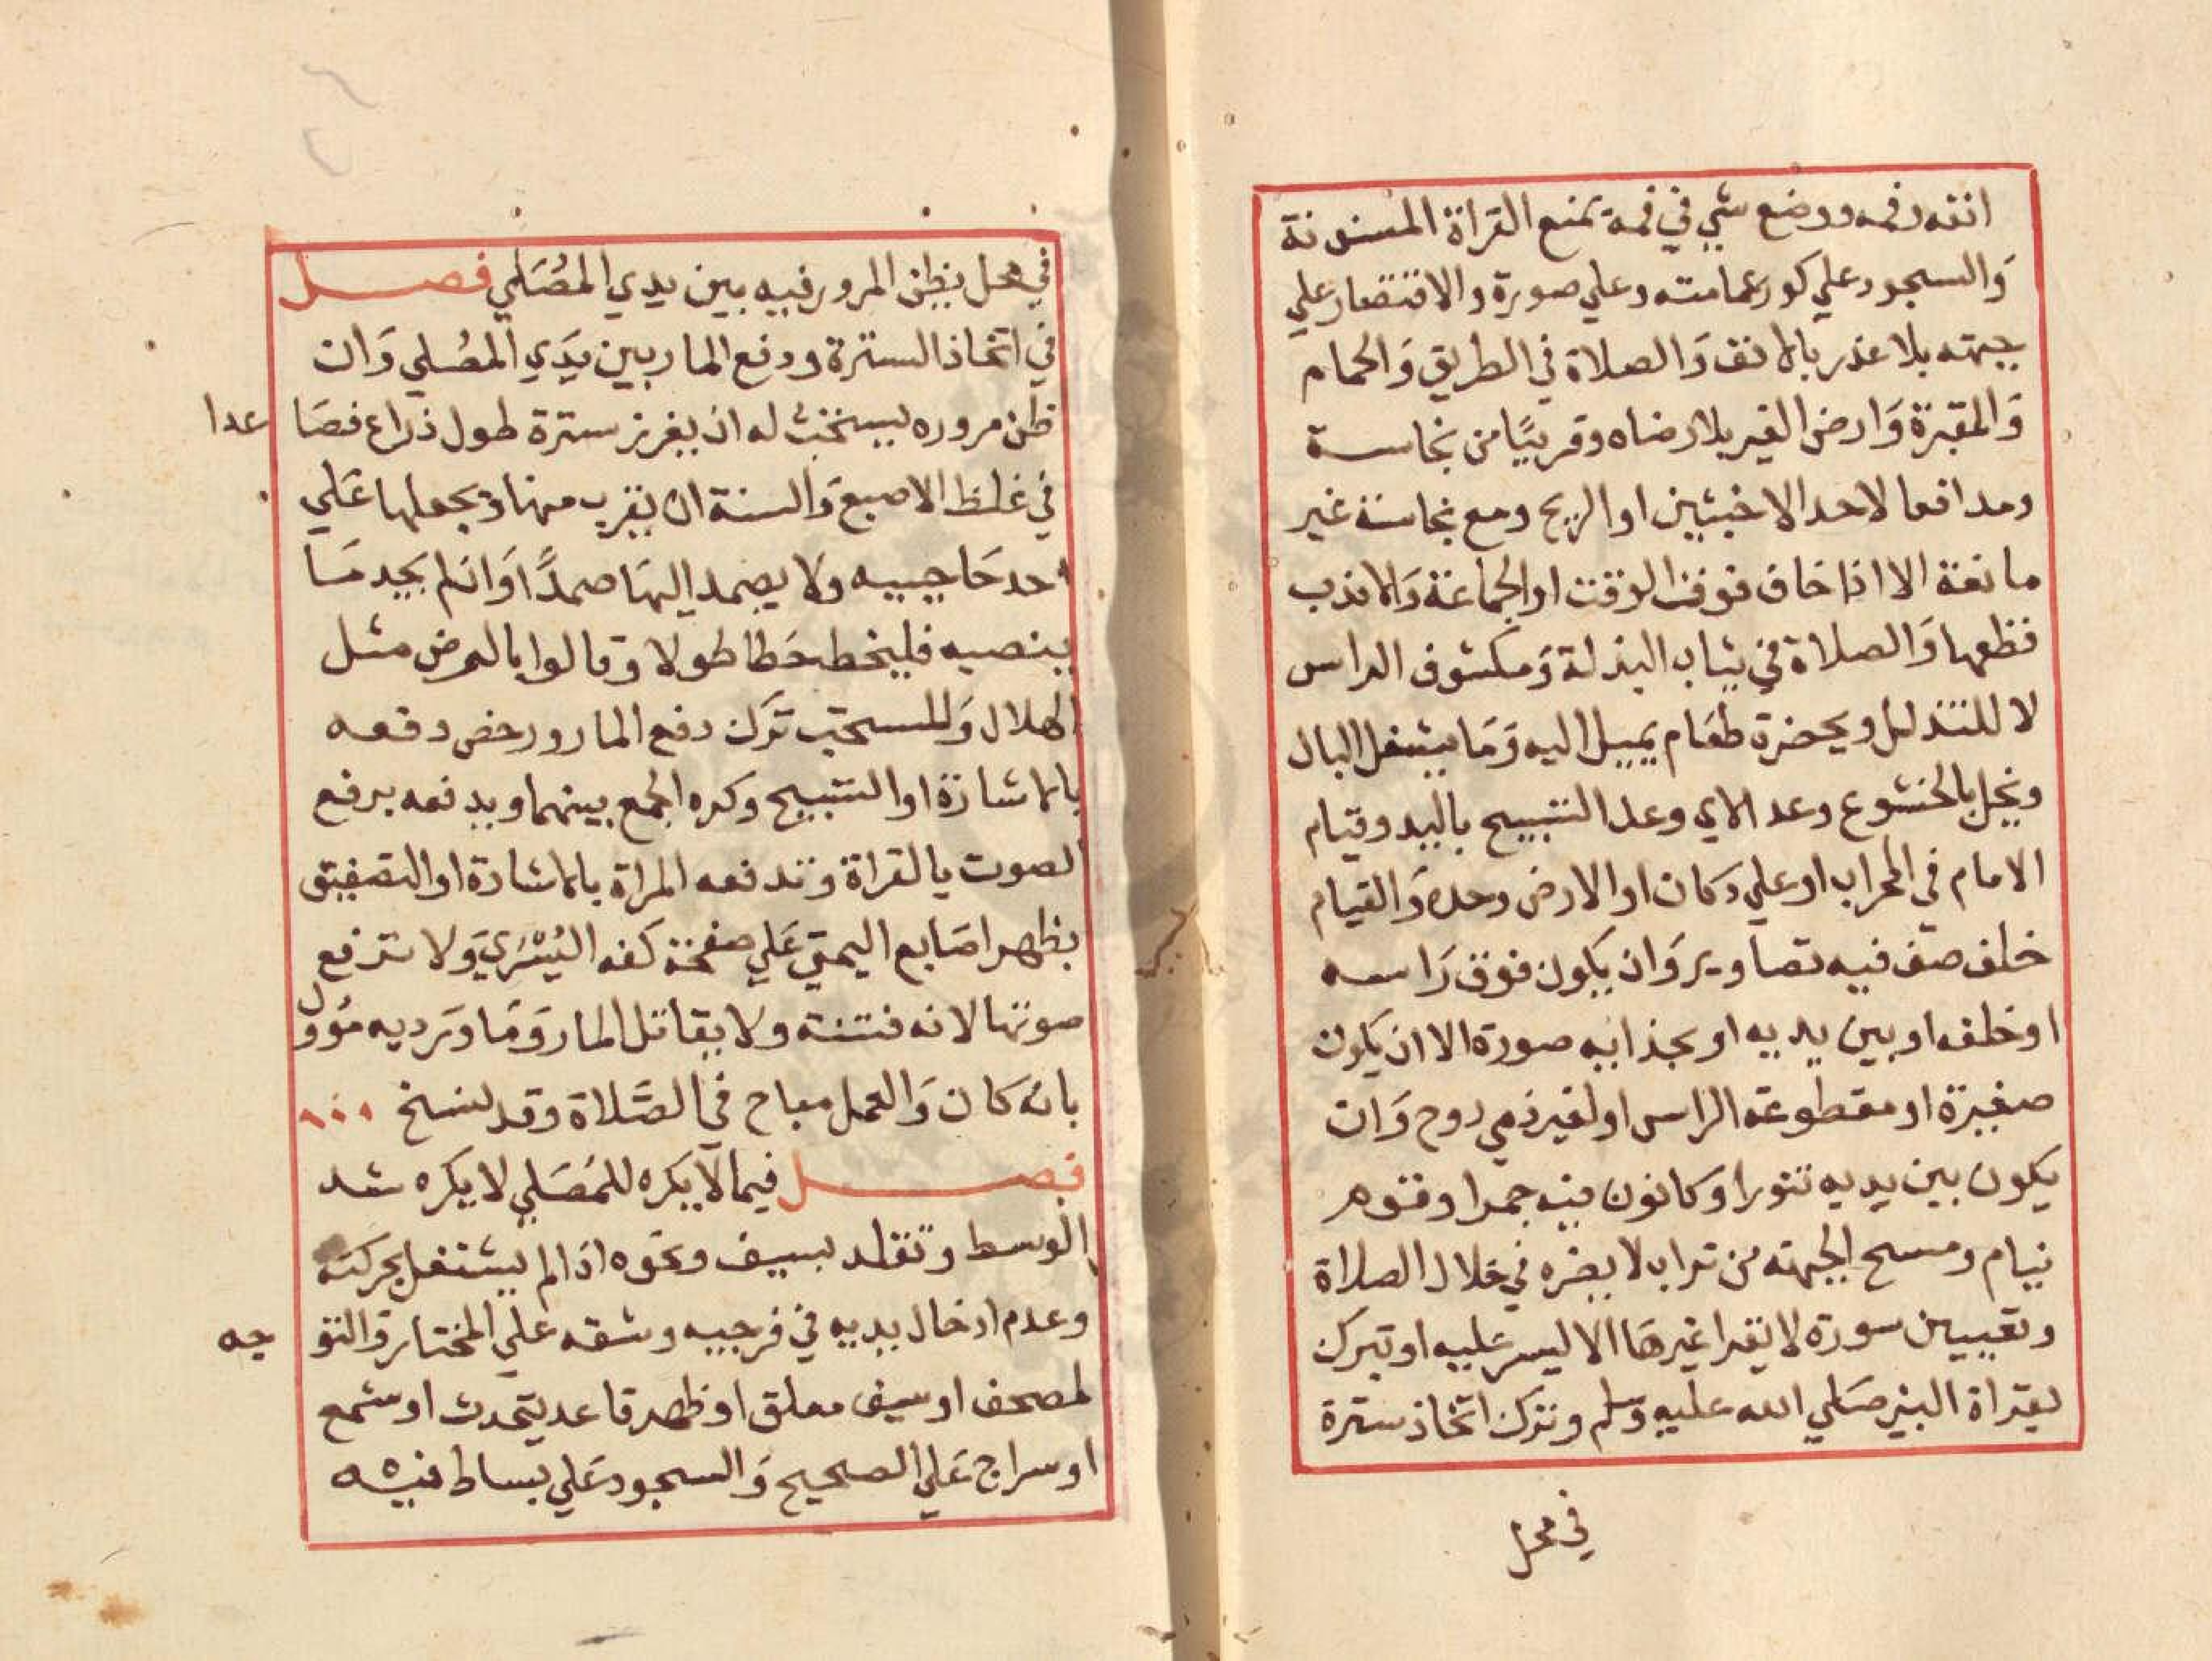 انفه وفمه ووضع شي في فمه يمنع القراة المسنونة
والسجود علي كور عمامته وعلي صورة والاقتصار علي
جبهته بلا عذر بالانف والصلاة في الطريق والحمام
والمقبرة وارض الغير بلا رضاه وقريبا من نجاسة
ومدافعا لاحد الاخبثين او الريح ومع نجاسة غير
مانعة الا اذا خاف فوت الوقت او الجماعة والا ندب
قطعها والصلاة في ثياب البذلة ومكشوف الراس
لا للتذلل وبحضرة طعام يميل اليه وما يشغل البال
ويخل بالخشوع وعد الاي وعد التسبيح باليد وقيام
الامام في المحراب او علي دكان او الارض وحده والقيام
خلف صف فيه تصاوير وان يكون فوق راسه
او خلفه او بين يديه او بحذايه صورة الا ان يكون
صغيرة او مقطوعة الراس او لغير ذي روح وان
يكون بين يديه تنورا وكانون فيه جمرا وقوم
نيام ومسح الجبهة من تراب لا يضره في خلال الصلاة
وتعيين سورة لا يقرا غيرها الا ليسر عليه او تبرك
بقراة النبي صلي الله عليه وسلم وترك اتخاذ سترة
في محل
في محل يظن المرور فيه بين يدي المصلي فصل
في اتخاذ السترة ودفع المار بين يدي المصلي وان
ظن مروره يستحب له ان يغرز سترة طول ذراع فصا عدا
في غلظ الاصبع والسنة ان يقرب منها ويجعلها علي
احد حاجبيه ولا يصمد اليها صمدا وان لم يجد ما
ينصبه فليخط خطا طولا وقالوا بالعرض مثل
الهلال والمستحب ترك دفع المار ورخص دفعه
بالاشارة او التسبيح وكره الجمع بينهما ويدفعه برفع
الصوت بالقراة وتدفعه المراة بالاشارة او التصفيق
بظهر اصابع اليمني علي صفحة كفه اليسري ولا ترفع
صوتها لانه فتنة ولا يقاتل المار وما ورد به مؤول
بانه كان والعمل مباح في الصلاة وقد نسخ
فصل فيما لا يكره للمصلي لا يكره شد
الوسط وتقلد بسيف ونحوه اذا لم يشتغل بحركته
وعدم ادخال يديه في فرجيه وشقه علي المختار والتو جه
لمصحف او سيف معلق او ظهر قاعد يتحدث او شمع
او سراج علي الصحيح والسجود علي بساط فيه